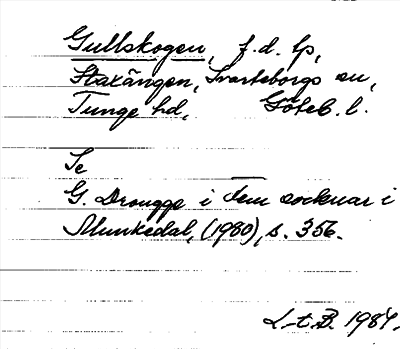 Gullskogen, f.d. lp,
Staxängen, Svarteborgs sn,
Tunge hd, Göteb. l.
Se
G. Drougge i dem socknar i
Munkedal, (1980), s. 356.
L-t.B. 1984.